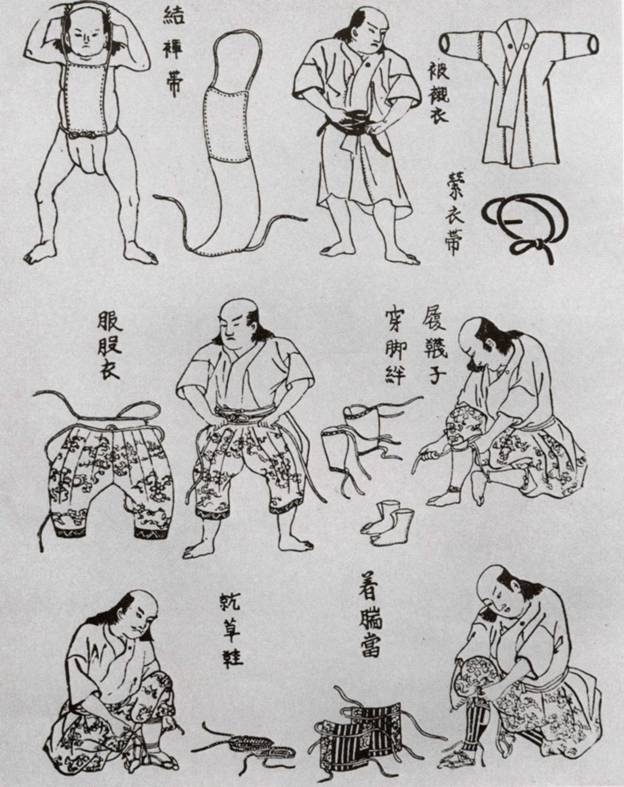 結褌帯
被襯衣
縈衣帯
服股衣
履韈子
穿脚絆
草鞋
着臑當